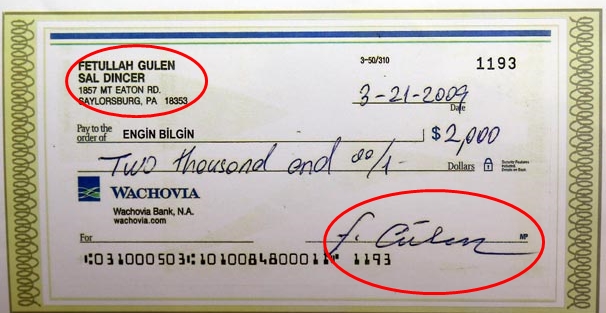 FETULLAH GULEN
SAL DINCER
1857 MT EATON RD.
SAYLORSBURG, PA 18353
3-50/310
1193
3-21-2009
Date
Pay to the order of ENGİN BİLGİN
$ 2,000
Two thousand and 00/1-
Dollars
WACHOVIA
Wachovia Bank, N.A.
wachovia.com
For
f. Gülen
MP
⑆031000503⑆1010084800011⑈ 1193